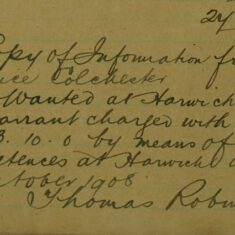 24
Copy of Information fr
ice Colchester
Wanted at Harwich
arrant charged with
3. 10. 0 by means of
tences at Harwich
tober 1908
Thomas Robin